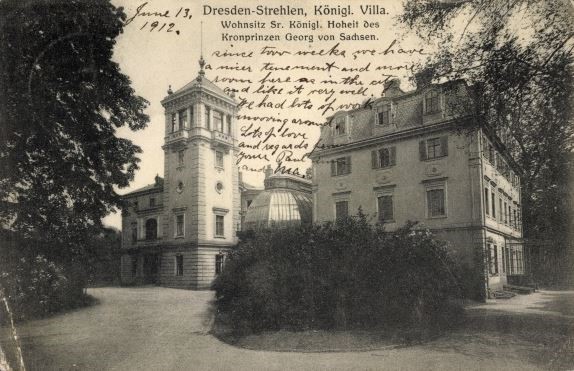 June 13,
1912.
Dresden-Strehlen, Königl. Villa.
Wohnsitz Sr. Königl. Hoheit des
Kronprinzen Georg von Sachsen.
since two weeks, we have
a nicer tenement and more
room here as in the city
and like it very well
We had lots of work
moving around
Lots of love
and regards from
yours Paul
and